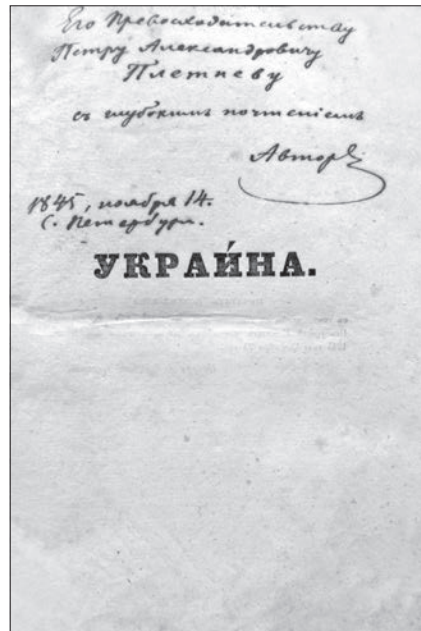 Его Превосходительству
Петру Александровичу
Плетневу
съ глубокимъ почтеніемъ
Авторъ
1845, ноября 14.
С. Петербург.
УКРАИ́НА.